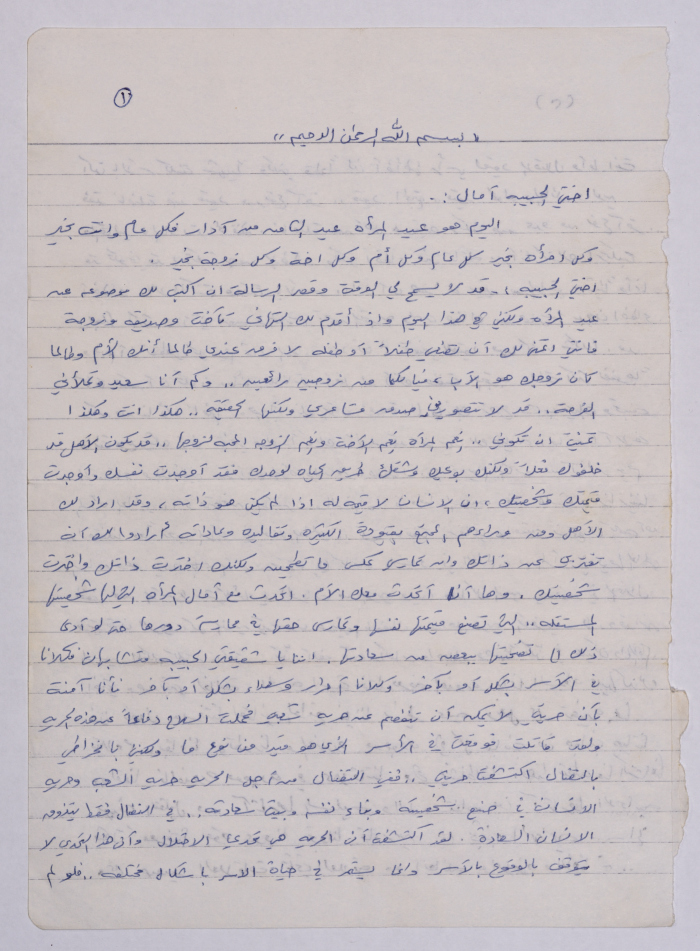 ١
(٢)
"بسم الله الرحمن الرحيم"
اختي الحبيبة آمال :.
اليوم هو عيد المرأه عيد الثامن من آذار فكل عام وانت بخير
وكل امرأه بخير كل عام وكل أم وكل اخت وكل زوجة بخير .
اختي الحبيبه ، قد لا يسمح لي الوقت وقصر الرسالة ان اكتب لك موضوعه عن
عيد المرأه ولكني في هذا اليوم واذ أقدم لك التهاني كأخت وصديقه وزوجة
فانني اتمنى لك أن تضعي طفلاً أو طفله لا فرق عندي طالما أنك الأم وطالما
كان زوجك هو الأب ، فيا لكما من زوجين رائعين .. وكم أنا سعيد وتملأني
الفرحة .. قد لا تتصورين صدق مشاعري ولكنها الحقيقة .. هكذا انت وهكذا
تمنيت ان تكوني .. نعم المرأه نعم الأخت ونعم الزوجه المحبه لزوجها .. قد يكون الأهل قد
خلفوك فعلاً ولكنك بوعيك وشقك طريق الحياه لوحدك فقد أوجدت نفسك وأوجدت
قيمتك وشخصيتك ، ان الانسان لا قيمه له اذا لم يكن هو ذاته ، وقد اراد لك
الأهل ومن وراءهم المجتمع بقيوده الكثيره وتقاليده وعاداته ارادوا لك أن
تغتربي عن ذاتك وان تمارسي عكس ما تطمحين ولكنك اخترت ذاتك واخترت
شخصيتك . وها أنا أتحدث معك الأم . اتحدث مع آمال المرأه التي لها شخصيتها
المستقله .. التي تصنع قيمتها بنفسها وتمارس حقها في ممارسة دورها حتى لو أدى
ذلك الى تضحيتها ببعض من سعادتها . اننا يا شقيقتي الحبيبه متشابهان فكلانا
في الأسر بشكل أو بآخر وكلانا أحرار وسعداء بشكل أو بآخر فأنا آمنت
بأن حريتي لا يمكن أن تنفصم عن حرية شعبي فحملت السلاح دفاعاً عن هذه الحريه
ولقد قاتلت فوقعت في الأسر الذي هو قيد من نوع ما ولكني بانخراطي
بالنضال اكتشفت حريتي .. ففي النضال من أجل الحريه حرية الشعب وحرية
الانسان في صنع شخصيته وبناء نفسه وبيته سعادته .. في النضال فقط يتذوق
الانسان السعادة . لقد اكتشفت أن الحريه هي تحدي الاحتلال وأن هذا التحدي لا
يتوقف بالوقوع بالأسر وانما يستمر في حياة الاسر باشكال مختلفه .. فلو لم